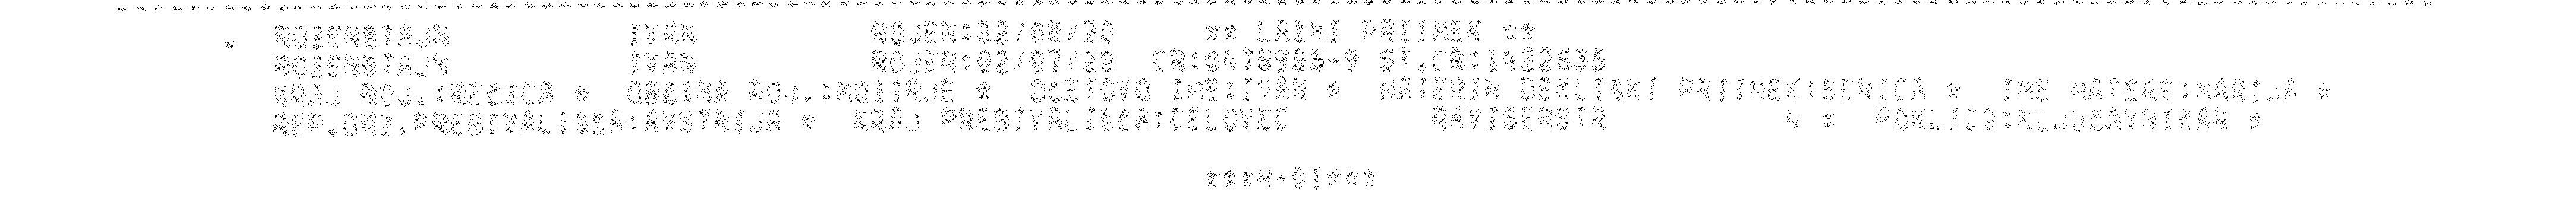 * ROZENSTAJN IVAN ROJEN:22/08/20 ** LAZNI PRIIMEK **
ROZENSTAJN IVAN ROJEN:02/07/20 CR:0475955-9 ST.CR:1422635
KRAJ ROJ.:RECICA * OBCINA ROJ.:MOZIRJE * OCETOVO IME:IVAN * MATERIN DEKLISKI PRIIMEK:SENICA * IME MATERE:MARIJA *
REP.DRZ.PREBIVALISCA:AVSTRIJA * KRAJ PREBIVALISCA:CELOVEC 4 * POKLIC2:KLJUCAVNICAR *